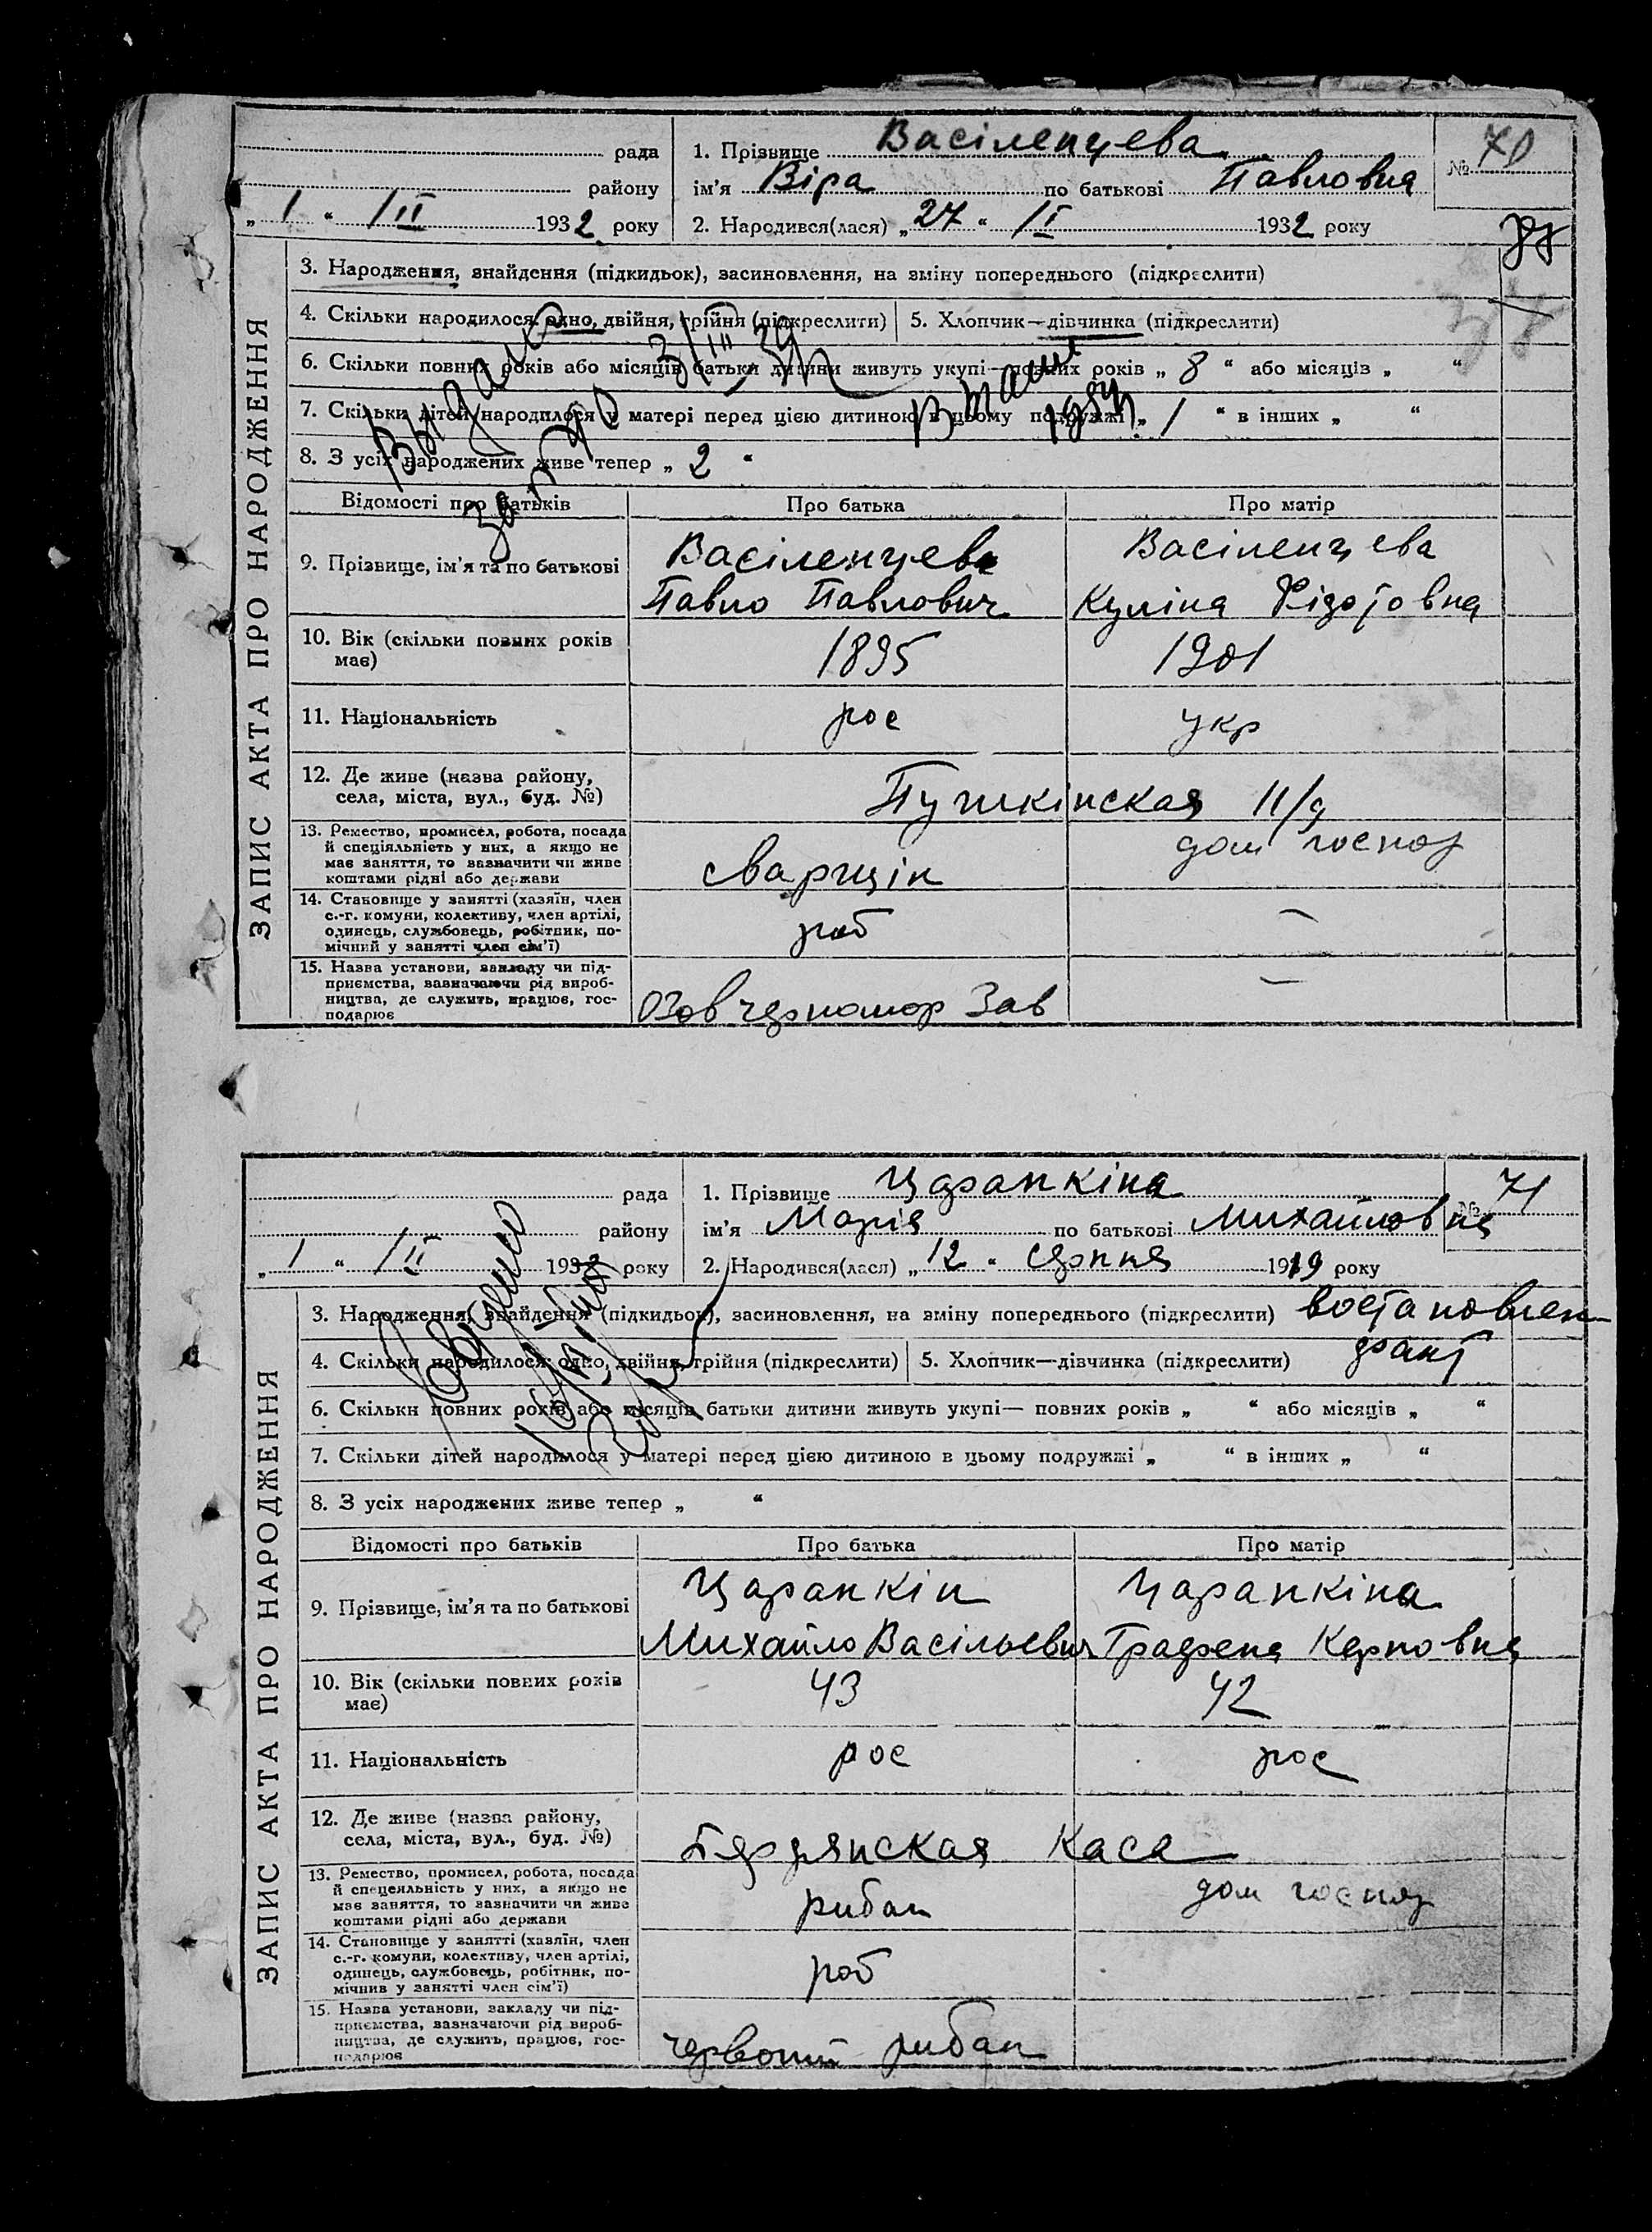 рада
району
„ 1 “ III 1932 року
1. Прізвище Васіленцева
ім'я Віра по батькові Павловна
2. Народився(лася) „ 27 “ II 1932 року
№ 70
ЗАПИС АКТА ПРО НАРОДЖЕННЯ
3. Народження, знайдення (підкидьок), засиновлення, на зміну попереднього (підкреслити)
4. Скільки народилося: одно, двійня, трійня (підкреслити)
5. Хлопчик—дівчинка (підкреслити)
6. Скільки повних років або місяців батьки дитини живуть укупі—повних років „ 8 “ або місяців „ “
7. Скільки дітей народилося у матері перед цією дитиною в цьому подружжі „ 1 “ в інших „ “
8. З усіх народжених живе тепер „ 2 “
Відомості про батьків Про батька Про матір
9. Прізвище, ім'я та по батькові
Васіленцев
Павло Павлович
Васіленцева
Куліна Фідотовна
10. Вік (скільки повних років має) 1895 1901
11. Національність рос укр
12. Де живе (назва району,
села, міста, вул., буд. №)
Пушкінская 11/9
13. Ремество, промисел, робота, посада
й спеціяльність у них, а якщо не
має заняття, то зазначити чи живе
коштами рідні або держави
сварщік
дом господ
14. Становище у занятті (хазяїн, член
с.-г. комуни, колективу, член артілі,
одинець, службовець, робітник, по-
мічний у занятті член сім'ї)
роб —
15. Назва установи, закладу чи під-
приємства, зазначаючи рід вироб-
ництва, де служить, працює, гос-
подарює
Озовчерномор Зав —
рада
району
„ 1 “ III 1932 року
1. Прізвище Царапкіна
ім'я Марія по батькові Михайловна
2. Народився(лася) „ 12 “ серпня 1919 року
№ 71
ЗАПИС АКТА ПРО НАРОДЖЕННЯ
3. Народження, знайдення (підкидьок), засиновлення, на зміну попереднього (підкреслити)
4. Скільки народилося: одно, двійня, трійня (підкреслити)
5. Хлопчик—дівчинка (підкреслити)
6. Скільки повних років або місяців батьки дитини живуть укупі— повних років „ “ або місяців „ “
7. Скільки дітей народилося у матері перед цією дитиною в цьому подружжі „ “ в інших „ “
8. З усіх народжених живе тепер „ “
Відомості про батьків Про батька Про матір
9. Прізвище, ім'я та по батькові
Царапкін
Михайло Васільевич
Царапкіна
Графена Карповна
10. Вік (скільки повних років має) 43 42
11. Національність рос рос
12. Де живе (назва району,
села, міста, вул., буд. №)
Бердянская Каса
13. Ремество, промисел, робота, посада
й спецеяльність у них, а якщо не
має заняття, то зазначити чи живе
коштами рідні або держави
рибак
дом господ
14. Становище у занятті (хазяїн, член
с.-г. комуни, колективу, член артілі,
одинець, службовець, робітник, по-
мічнив у занятті член сім'ї)
роб
15. Назва установи, закладу чи під-
приємства, зазначаючи рід вироб-
ництва, де служить, працює, гос-
подарює
червоний рибак